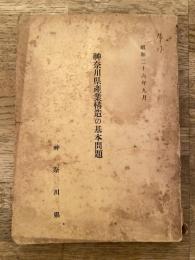 昭和二十六年九月
神奈川県産業構造の基本問題
神奈川県